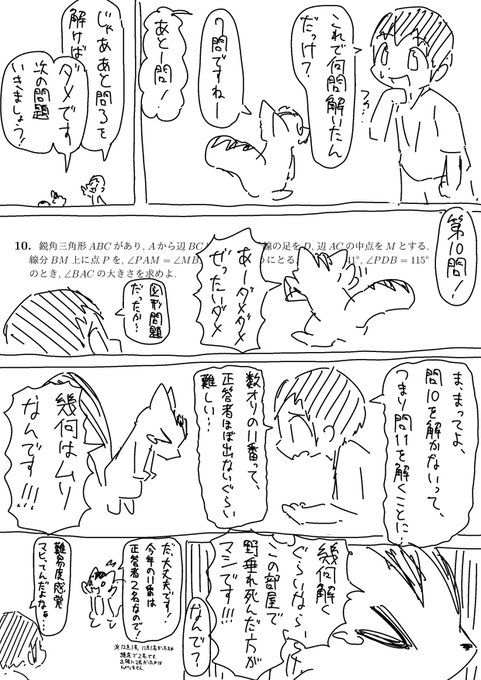 これで何問解いたん
だっけ?
7問ですねー
あと一問!
じゃああと問3を
解けば
ダメです
次の問題
いきましょう!
第10問!
10. 鋭角三角形 ABC があり, A から辺 BC
線の足を D, 辺 AC の中点を M とする.
線分 BM 上に点 P を, ∠PAM = ∠MB
うにとる.
1°, ∠PDB = 115°
のとき, ∠BAC の大きさを求めよ.
あーダメダメ
ぜったいダメ
図形問題
だったか〜
ま、まってよ、
問10を解かないって、
つまり問11を解くことに…
数オリの11番って、
正答者ほぼ出ないぐらい
難しい…
幾何はムリ
なんです!!!
幾何解く
ぐらいなら、
この部屋で
野垂れ死んだ方が
マシです!!!
なんで?
だ、大丈夫です!
今年の11番は
正答者2名なので!
難易度感覚
マヒってんだよなぁ…